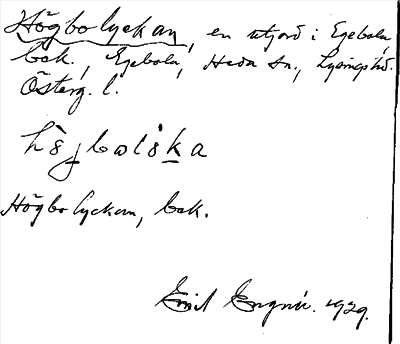 Högbolyckan, en utjord i Egebola
bok., Egebola, Heda sn., Lysings hd.
Österg. l.
hö̀jbωlis̀ka
Högbolyckan, bok.
Emil 1929.